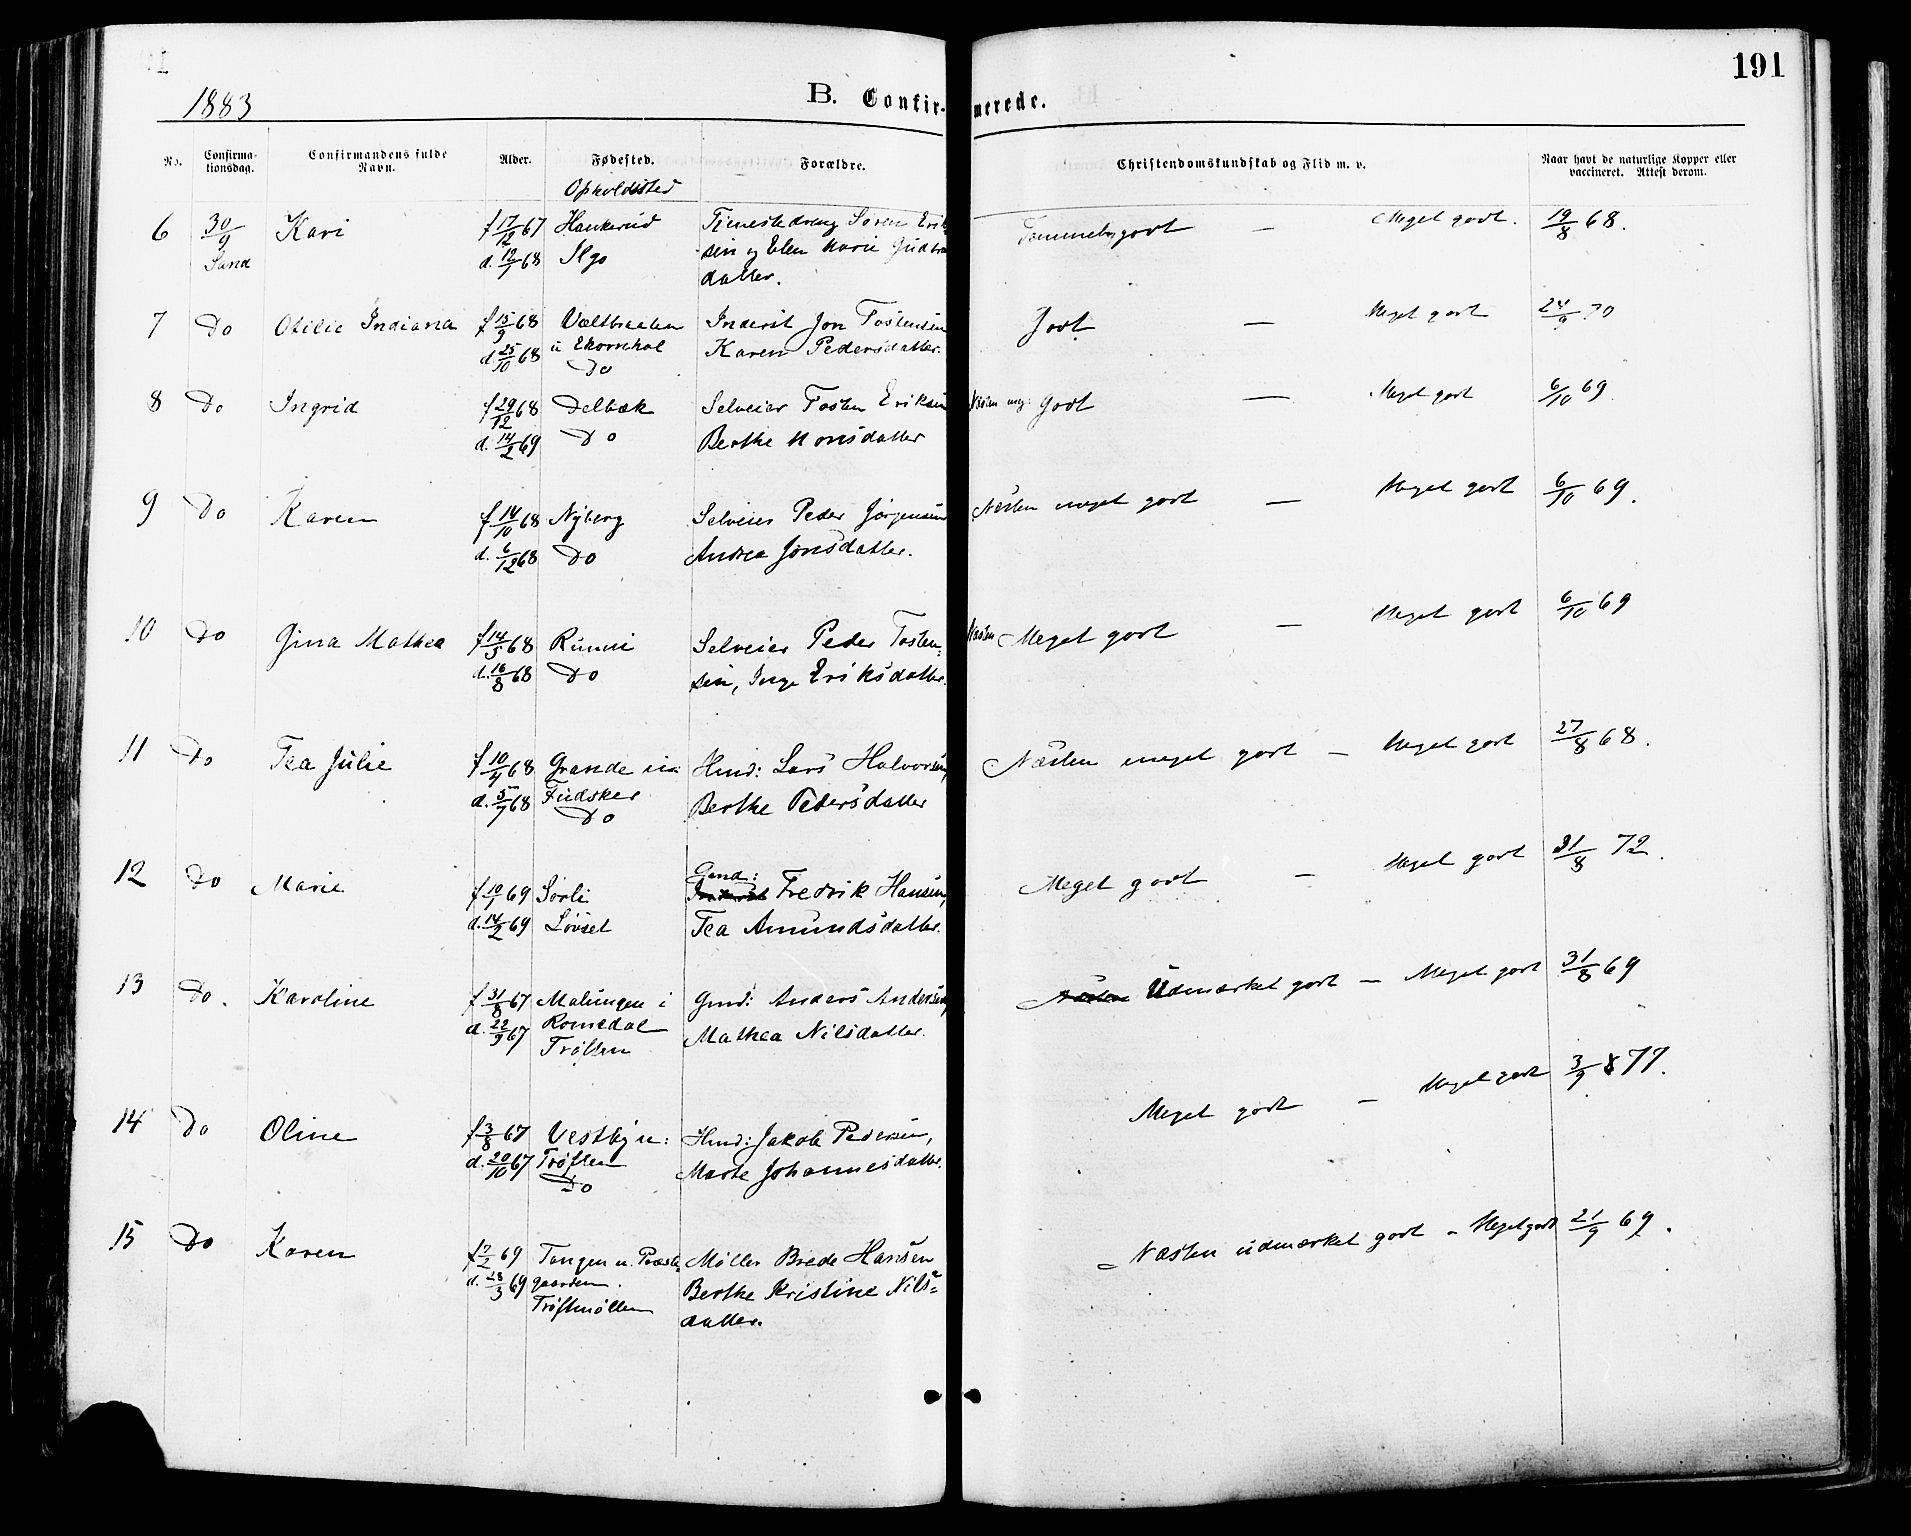 191
1883
B. Confirmerede.
No.
Confirmationsdag.
Confirmandens fulde Navn.
Alder.
Fødested.
Opholdssted
Forældre.
Christendomskundskab og Flid m. v.
Naar havt de naturlige Kopper eller vaccineret. Attest derom.
6 30/9 Kari f 17/12 67 Tjenestedreng Søren Erik- Temmelig godt — Meget godt. 19/8 68.
Sand d. 12/1 68 sen og Elen Marie Gudbrands
datter.
7 Do Otilie Indiana f 15/9 68 Væltbraaten Inderst Jon Tostensen Godt — Meget godt 24/9 70
d. 25/10 68 u Ekornhol Karen Pedersdatter.
Do
8 Do Ingrid f 29/12 68 Delbæk Selveier Tosten Eriksen Næsten meg: Godt — Meget godt 6/10 69.
d. 14/2 69 Do Berthe Monsdatter
9 Do Karen f 14/10 68 Nyberg Selveier Peder Jørgensen Næsten meget godt — Meget godt 6/10 69.
d. 6/12 68 Do Andrea Jonsdatter.
10 Do Gina Mathea f 14/5 68 Runni Selveier Peder Tosten- Næsten Meget godt — Meget godt 6/10 69
d. 16/8 68 Do sen, Inge Eriksdatter.
11 Do Tea Julie f 10/4 68 Grande u: Hmd: Lars Halvorsen, Næsten meget godt — Meget godt 27/8 68.
d. 5/7 68 Fudsker Berthe Pedersdatter
Do
12 Do Marie f 10/1 69 Sørli Gmd: Fredrik Hansen, Meget godt — Meget godt 21/8 72.
d. 14/2 69 Løvset Tea Amundsdatter.
13 Do. Karoline f 31/8 67 Malungen i Gmd: Anders Andersen, Næsten Udmærket godt — Meget godt 31/8 69
d. 22/9 67 Romedal Mathea Nilsdatter.
Trøften
14 Do Oline f 3/8 67 Vestby u: Hmd: Jakob Pedersen, Meget godt — Meget godt 3/9 77.
d. 20/10 67 Trøften Marte Johannesdatter.
Do
15 Do Karen f 7/2 69 Tangen u. Præste- Møller Brede Hansen Næsten udmærket godt — Meget godt 21/9 69.
d. 28/3 69 gaarden. Berthe Kristine Nils-
Trøftmøllen datter.